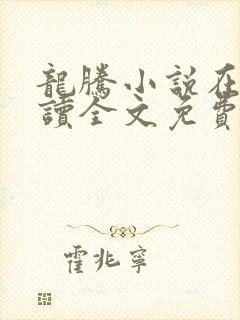 龍騰小說在
讀全文免費
霍兆寧